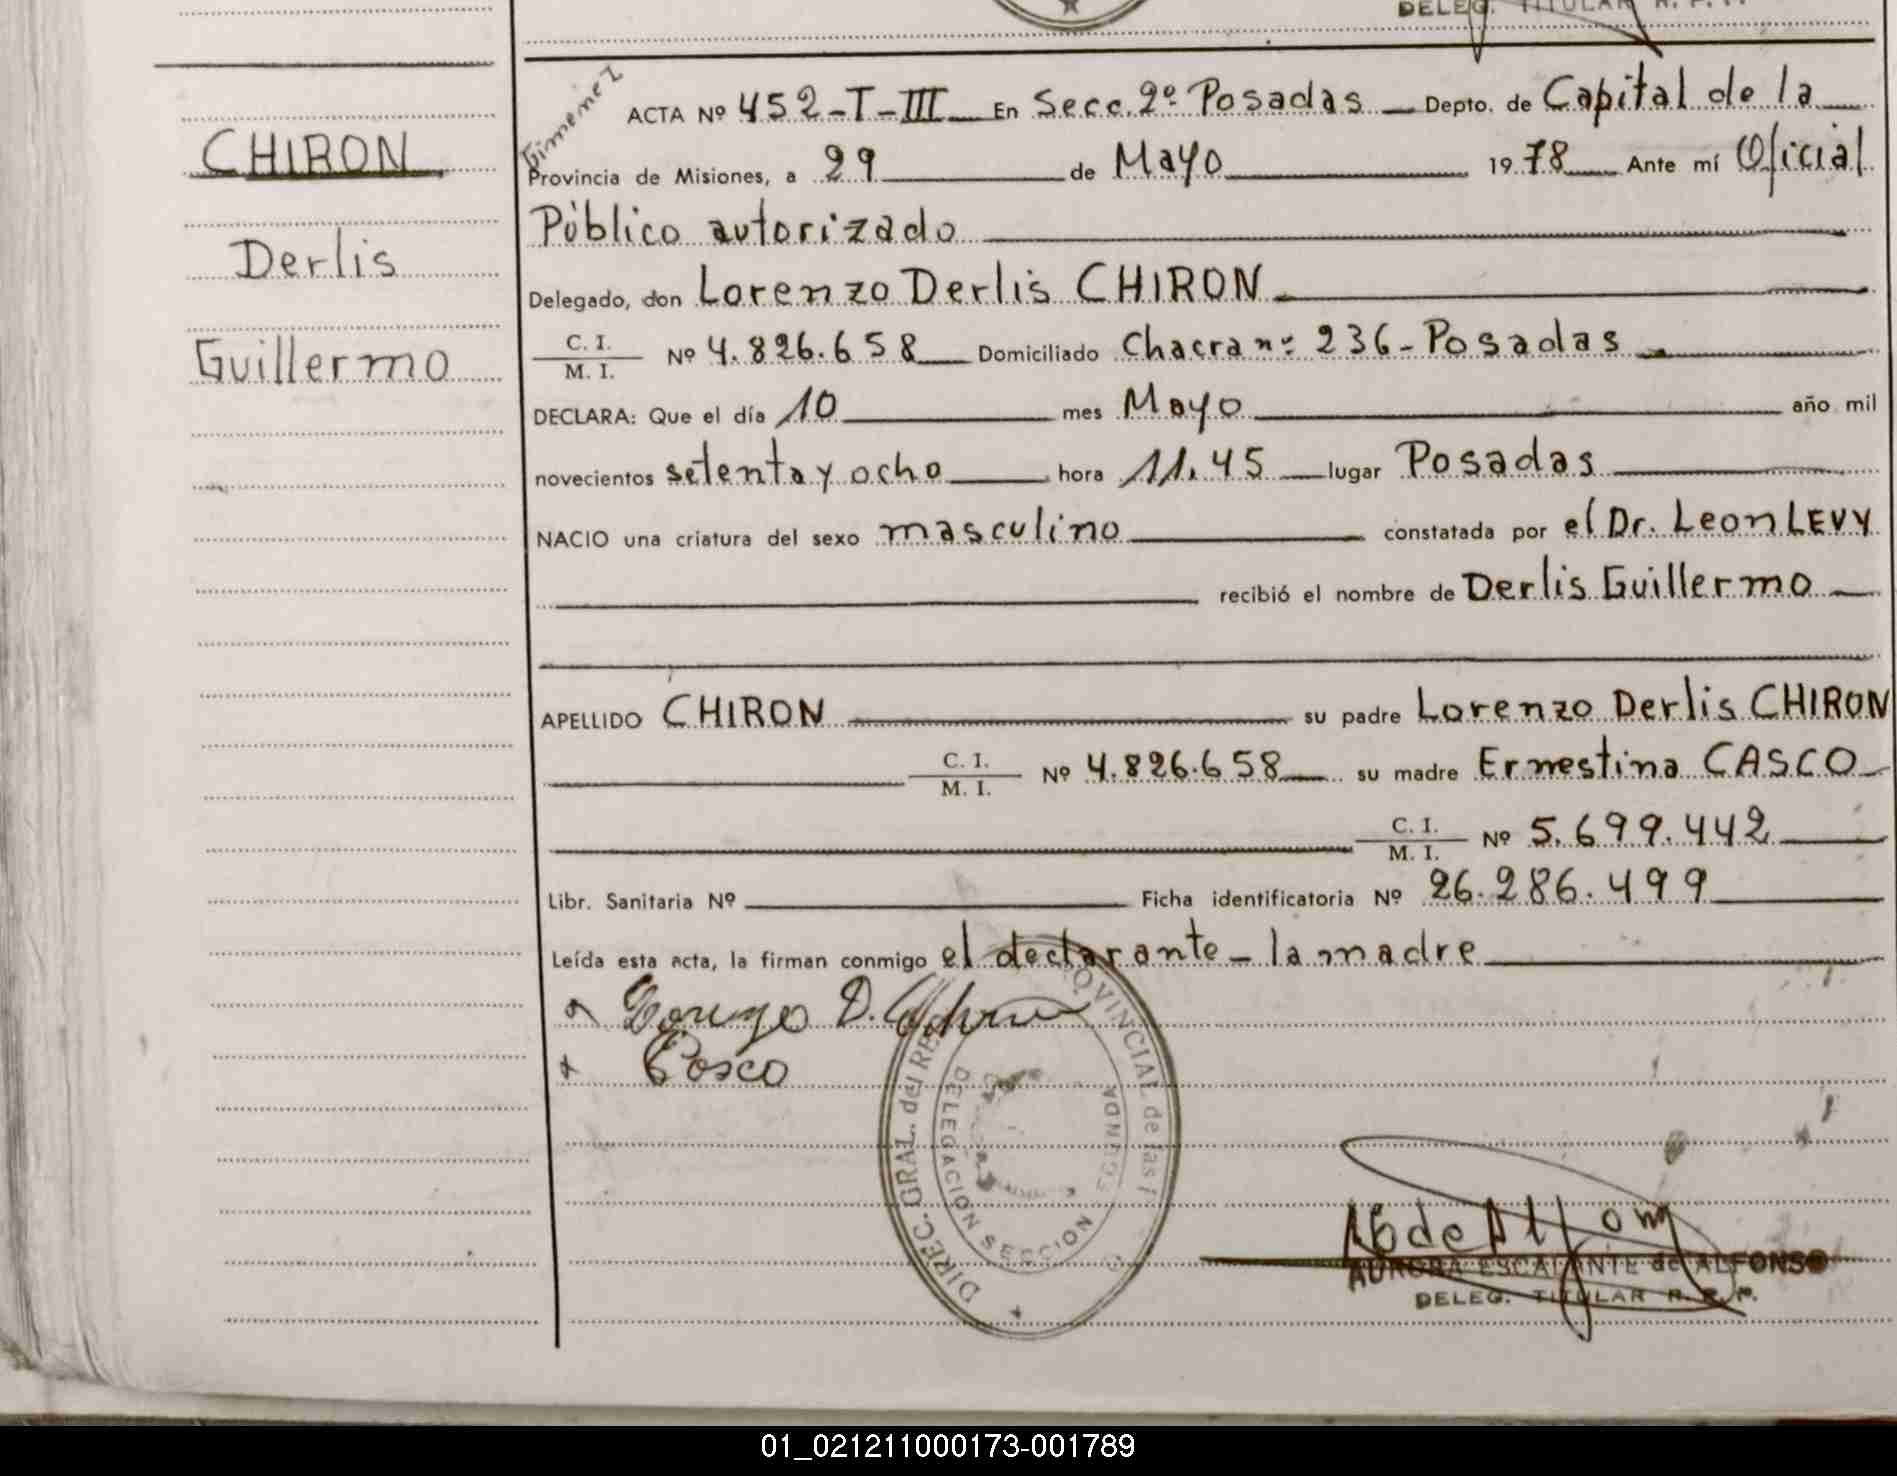 DELEG. TITULAR R. P. P.
CHIRON
Derlis
Guillermo
Gimenez
ACTA Nº 452-T-III En Secc. 2º Posadas Depto. de Capital de la
Provincia de Misiones, a 29 de Mayo 1978 Ante mí Oficial
Público autorizado
Delegado, don Lorenzo Derlis CHIRON
C. I.
M. I. Nº 4.826.658 Domiciliado Chacra nº 236-Posadas
DECLARA: Que el día 10 mes Mayo año mil
novecientos setenta y ocho hora 11.45 lugar Posadas
NACIO una criatura del sexo masculino constatada por el Dr. Leon LEVY
recibió el nombre de Derlis Guillermo
APELLIDO CHIRON su padre Lorenzo Derlis CHIRON
C. I.
M. I. Nº 4.826.658 su madre Ernestina CASCO
C. I.
M. I. Nº 5.699.442
Libr. Sanitaria Nº Ficha identificatoria Nº 26.286.499
Leída esta acta, la firman conmigo el declarante - la madre
Lorenzo D. Chiron
Casco
DIREC. GRAL. del REG PROVINCIAL de las
DELEGACION SECCION SEGUNDA
A E de Alfonso
AURORA ESCALANTE de ALFONSO
DELEG. TITULAR R. P. P.
01_021211000173-001789